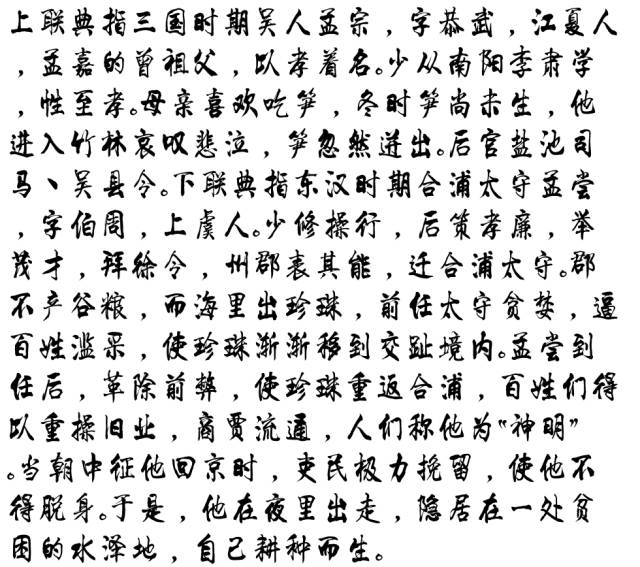 上联典指三国时期吴人孟宗，字恭武，江夏人
，孟嘉的曾祖父，以孝着名。少从南阳李肃学
，性至孝。母亲喜欢吃笋，冬时笋尚未生，他
进入竹林哀叹悲泣，笋忽然迸出。后官盐池司
马、吴县令。下联典指东汉时期合浦太守孟尝
，字伯周，上虞人。少修操行，后策孝廉，举
茂才，拜徐令，州郡表其能，迁合浦太守。郡
不产谷粮，而海里出珍珠，前任太守贪婪，逼
百姓滥采，使珍珠渐渐移到交趾境内。孟尝到
任后，革除前弊，使珍珠重返合浦，百姓们得
以重操旧业，商贾流通，人们称他为“神明”
。当朝中征他回京时，吏民极力挽留，使他不
得脱身。于是，他在夜里出走，隐居在一处贫
困的水泽地，自己耕种而生。